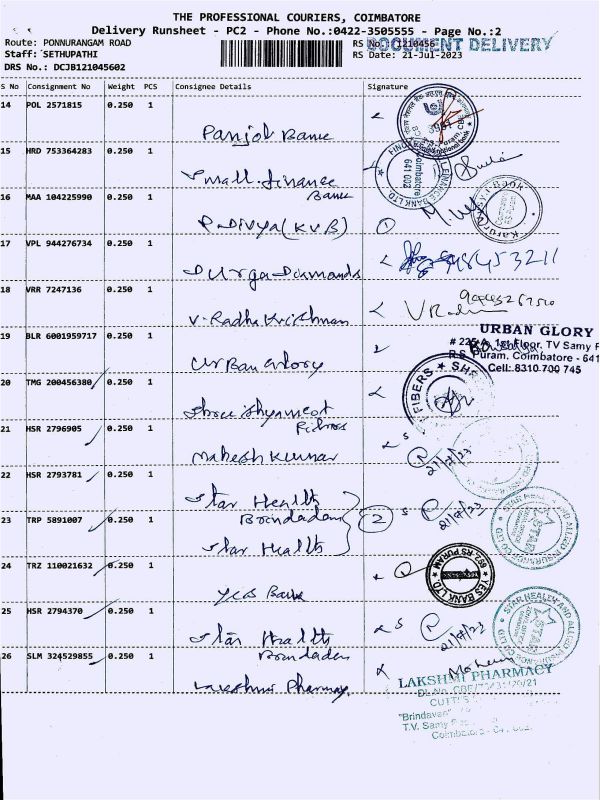 THE PROFESSIONAL COURIERS, COIMBATORE
Delivery Runsheet - PC2 - Phone No.:0422-3505555 - Page No.:2
Route: PONNURANGAM ROAD
RS No.: 1210456
DOCUMENT DELIVERY
Staff: SETHUPATHI
RS Date: 21-Jul-2023
DRS No.: DCJB121045602
S No Consignment No Weight PCS Consignee Details Signature
14 POL 2571815 0.250 1
Panjob Bank
15 HRD 753364283 0.250 1
Small finance
Bank
Coimbatore
641 002
16 MAA 104225990 0.250 1
P. Divya (KVB) 1
17 VPL 944276734 0.250 1
Durga Diamonds
18 VRR 7247136 0.250 1
V. Radha Krishnan
19 BLR 6001959717 0.250 1
Urban Glory
URBAN GLORY
1st Floor, TV Samy
R.S. Puram, Coimbatore - 641
Cell: 8310 700 745
20 TMG 200456380 0.250 1
FIBERS ★ SHR
21 HSR 2796905 0.250 1
Mahesh Kumar
21/7/23
22 HSR 2793781 0.250 1
Star Health
23 TRP 5891007 0.250 1
Star Health
2
21/7/23
STAR HEALTH AND ALLIED INSURANCE CO LTD
24 TRZ 110021632 0.250 1
Yes Bank
YES BANK LTD
R.S. PURAM
25 HSR 2794370 0.250 1
Star Health
21/7/23
STAR HEALTH AND ALLIED INSURANCE CO LTD
26 SLM 324529855 0.250 1
Lakshmi Pharmacy
LAKSHMI PHARMACY
T.V. Samy